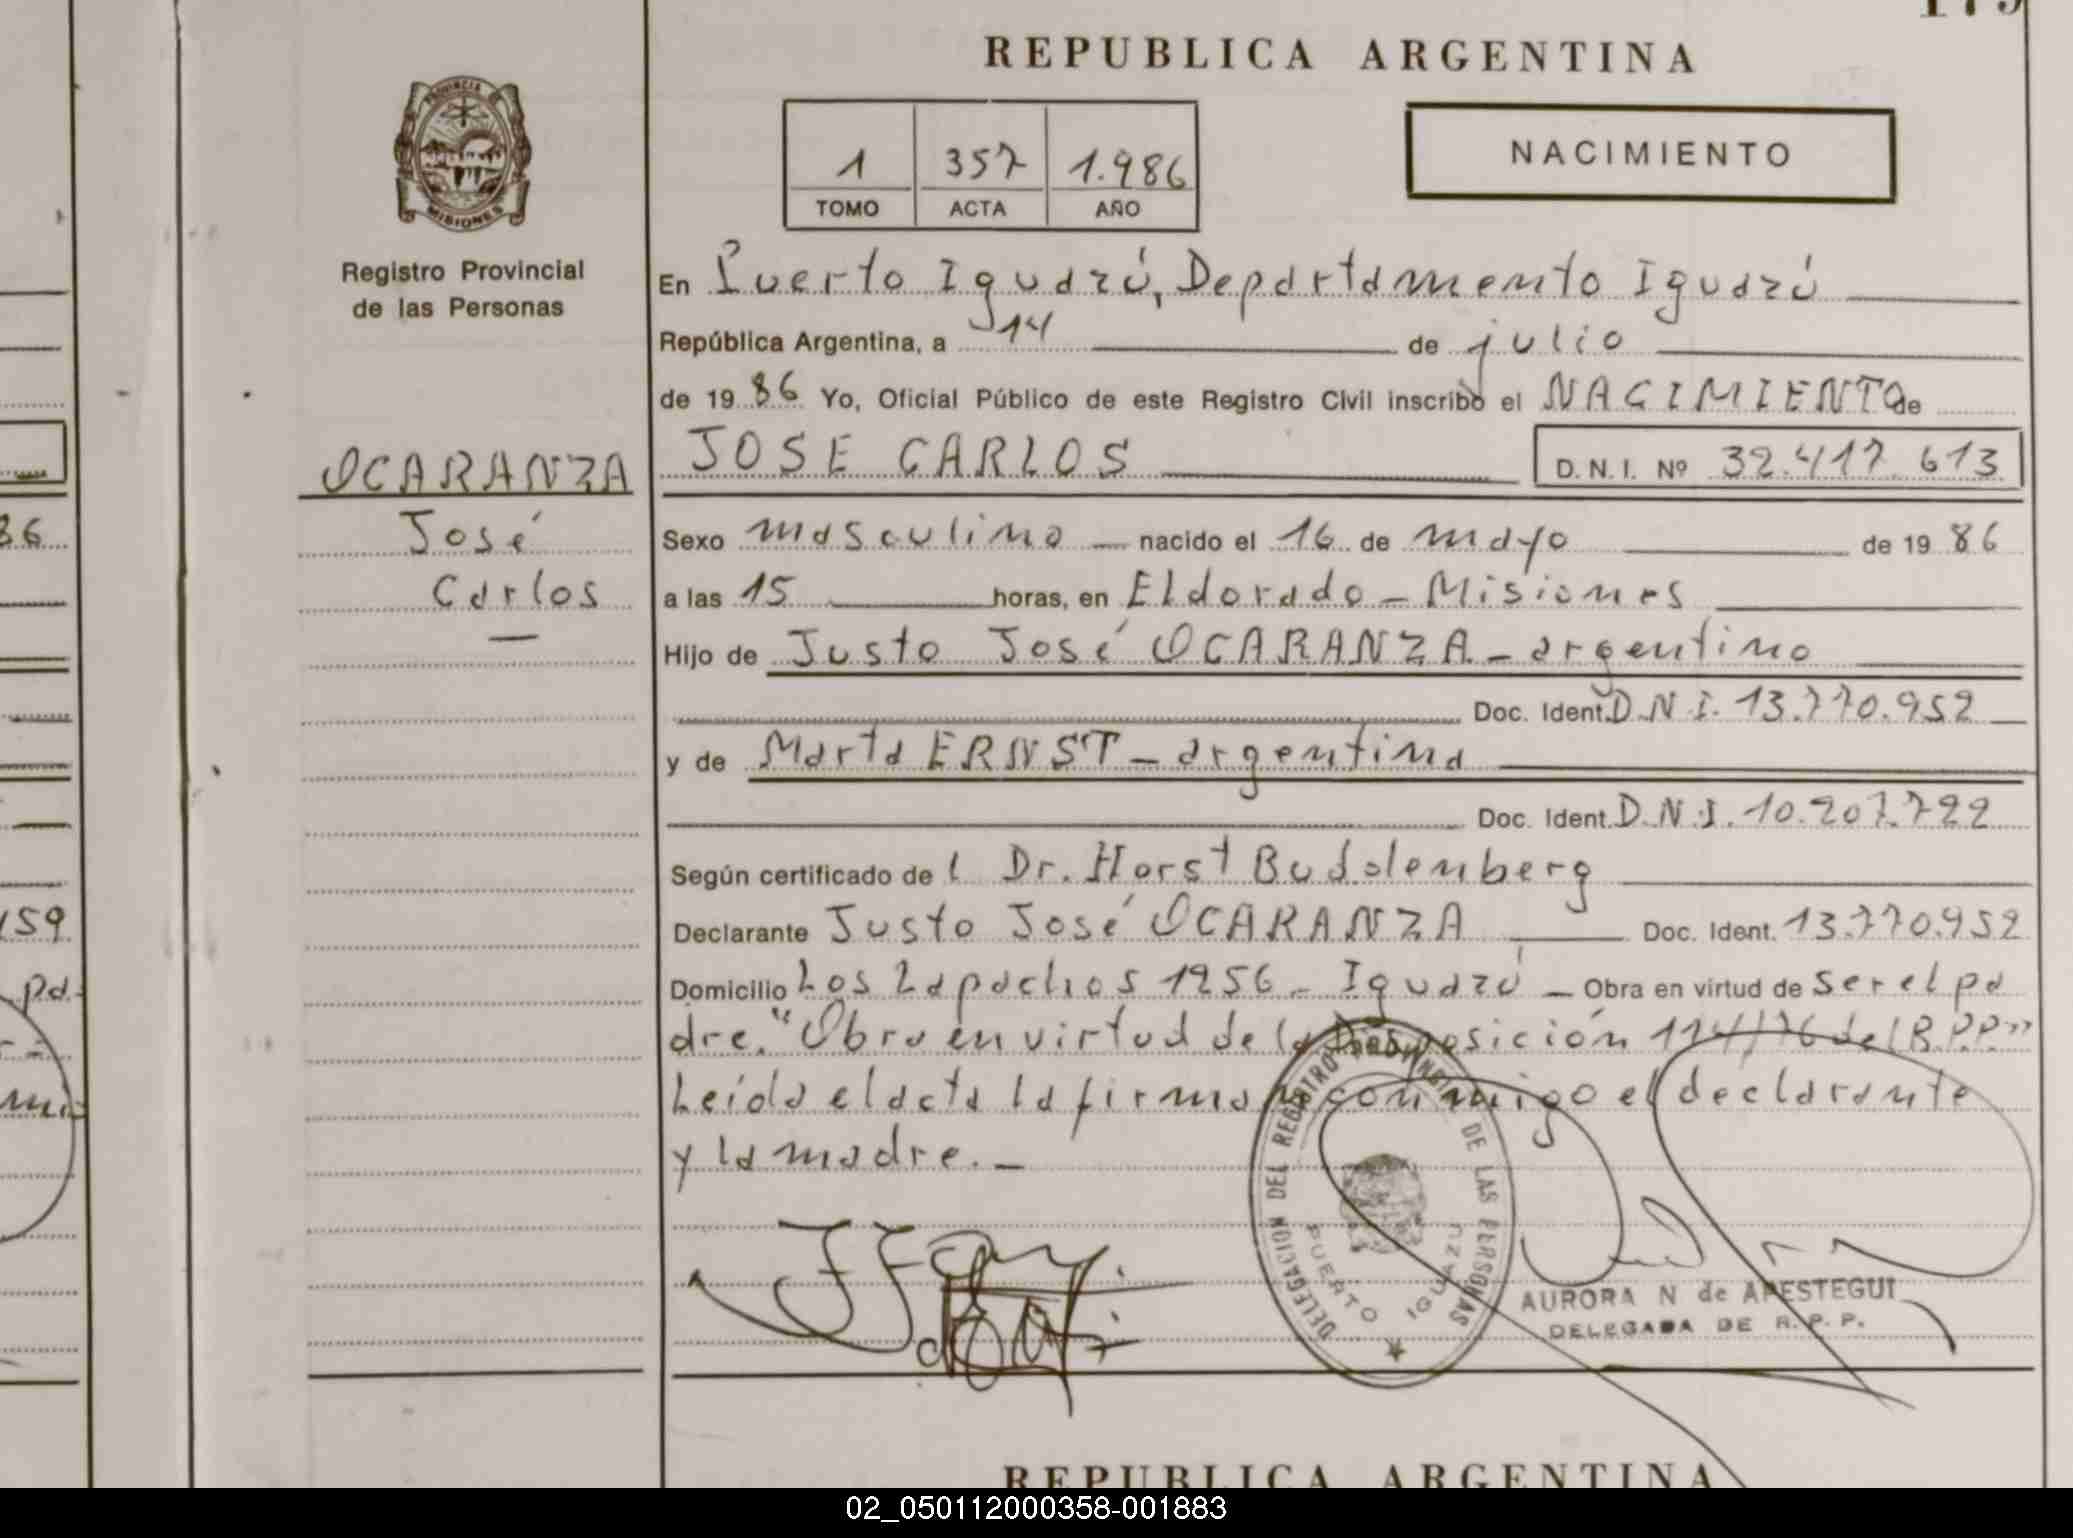 REPUBLICA ARGENTINA
PROVINCIA DE
MISIONES
Registro Provincial
de las Personas
1 357 1.986
TOMO ACTA AÑO
NACIMIENTO
En Puerto Iguazú, Departamento Iguazú
República Argentina, a 14 de julio
de 1986 Yo, Oficial Público de este Registro Civil inscribo el NACIMIENTO de
OCARANZA
José
Carlos
JOSE CARLOS D. N. I. Nº 32.417.613
Sexo masculino — nacido el 16 de mayo de 1986
a las 15 horas, en Eldorado - Misiones
Hijo de Justo José OCARANZA - argentino
Doc. Ident. D.N.I. 13.770.952
y de Marta ERNST - argentina
Doc. Ident. D.N.I. 10.207.722
Según certificado del Dr. Horst
Declarante Justo José OCARANZA Doc. Ident. 13.770.952
Domicilio Los Lapachos 1256 - Iguazú - Obra en virtud de ser el pa
dre. "Obra en virtud de la Disposición 114/76 del R.P.P."
Leída el acta la firman conmigo el declarante
y la madre. -
DELEGACION DEL REGISTRO PROVINCIAL DE LAS PERSONAS
PUERTO IGUAZU
AURORA N de APESTEGUI
DELEGADA DE R. P. P.
REPUBLICA ARGENTINA
02_050112000358-001883